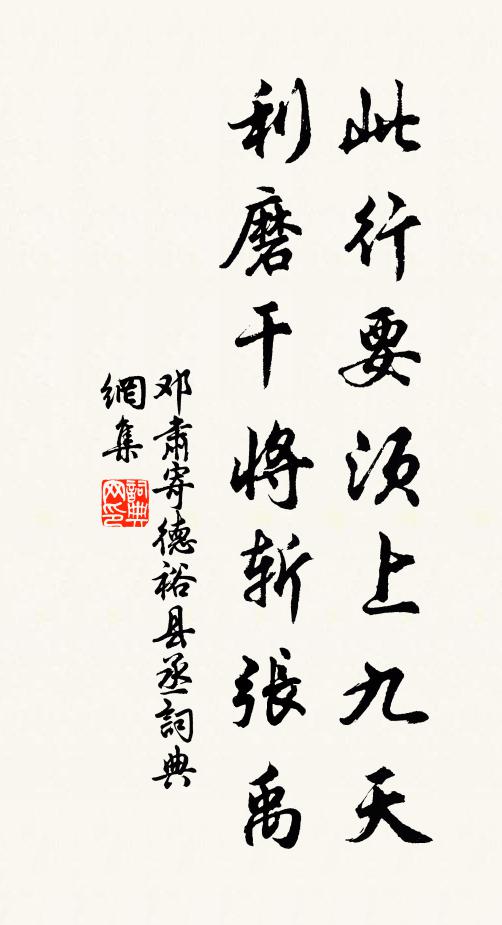 此行要须上九天
利磨干将斩張禹
邓肃寄德裕县丞詞典
網集
詞典
网印